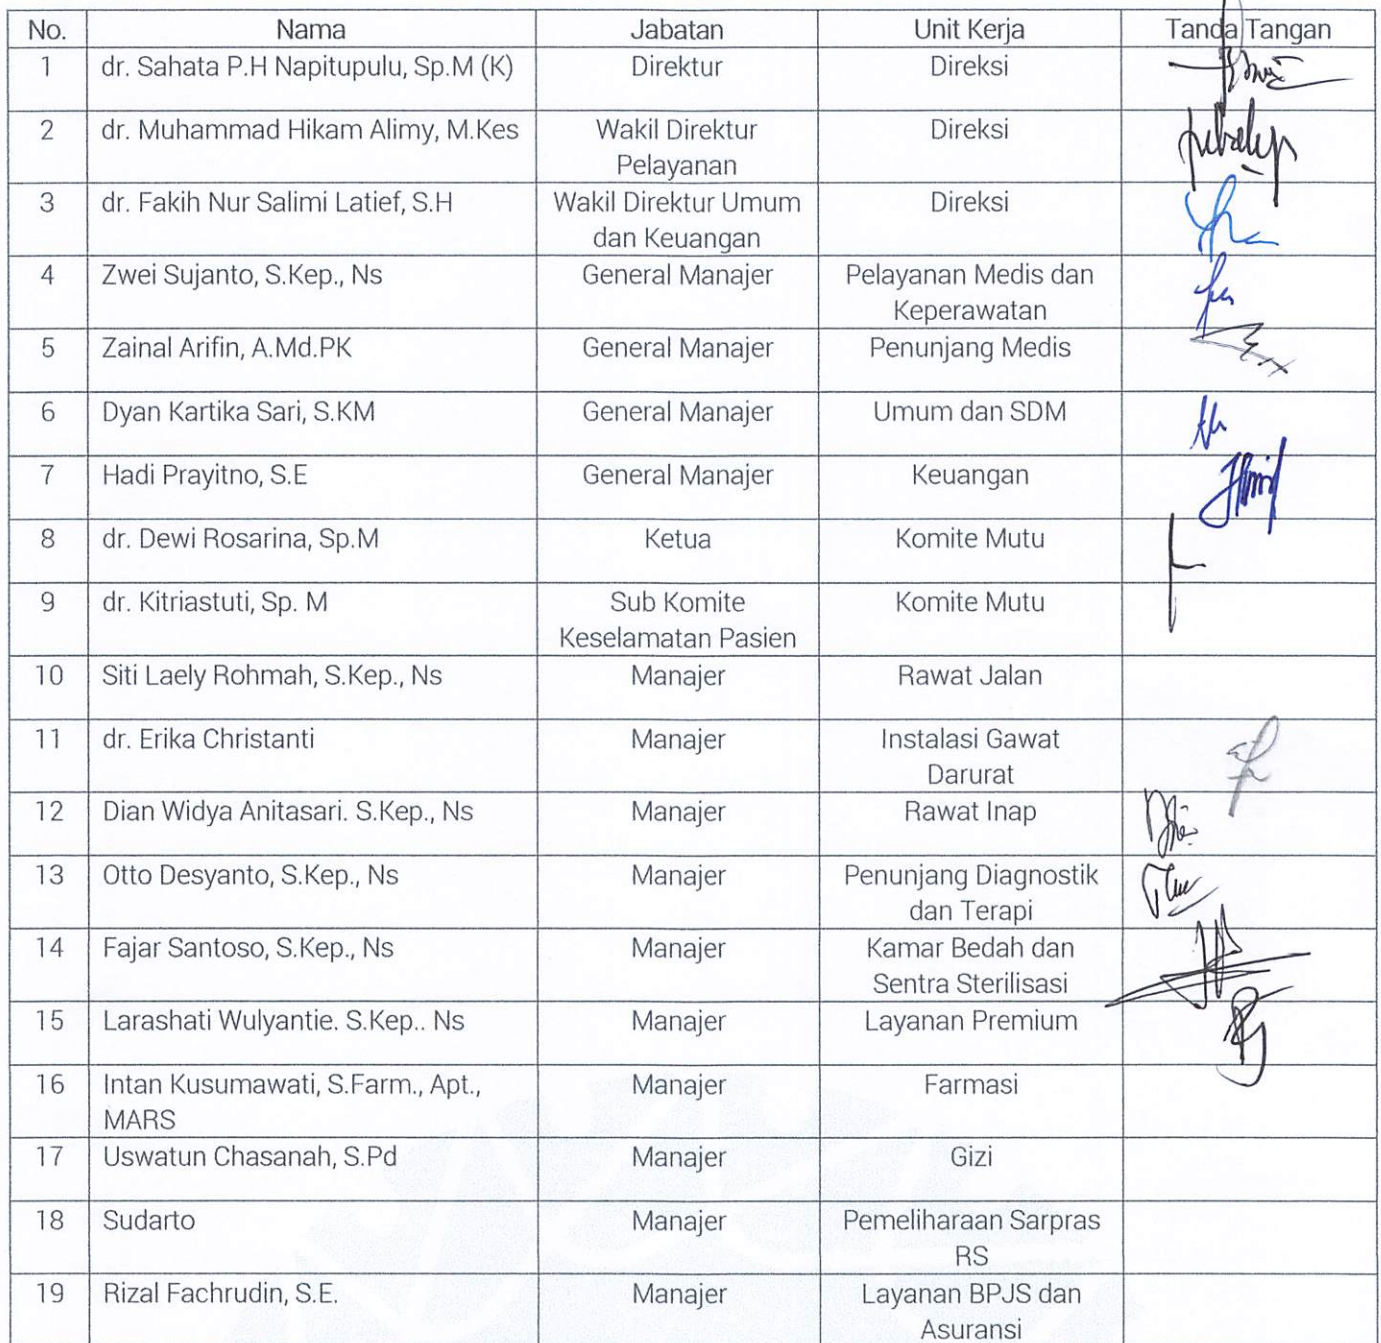 No. Nama Jabatan Unit Kerja Tanda Tangan
1 dr. Sahata P.H Napitupulu, Sp.M (K) Direktur Direksi
2 dr. Muhammad Hikam Alimy, M.Kes Wakil Direktur Direksi
Pelayanan
3 dr. Fakih Nur Salimi Latief, S.H Wakil Direktur Umum Direksi
dan Keuangan
4 Zwei Sujanto, S.Kep., Ns General Manajer Pelayanan Medis dan
Keperawatan
5 Zainal Arifin, A.Md.PK General Manajer Penunjang Medis
6 Dyan Kartika Sari, S.KM General Manajer Umum dan SDM
7 Hadi Prayitno, S.E General Manajer Keuangan
8 dr. Dewi Rosarina, Sp.M Ketua Komite Mutu
9 dr. Kitriastuti, Sp. M Sub Komite Komite Mutu
Keselamatan Pasien
10 Siti Laely Rohmah, S.Kep., Ns Manajer Rawat Jalan
11 dr. Erika Christanti Manajer Instalasi Gawat
Darurat
12 Dian Widya Anitasari. S.Kep., Ns Manajer Rawat Inap
13 Otto Desyanto, S.Kep., Ns Manajer Penunjang Diagnostik
dan Terapi
14 Fajar Santoso, S.Kep., Ns Manajer Kamar Bedah dan
Sentra Sterilisasi
15 Larashati Wulyantie. S.Kep.. Ns Manajer Layanan Premium
16 Intan Kusumawati, S.Farm., Apt., Manajer Farmasi
MARS
17 Uswatun Chasanah, S.Pd Manajer Gizi
18 Sudarto Manajer Pemeliharaan Sarpras
RS
19 Rizal Fachrudin, S.E. Manajer Layanan BPJS dan
Asuransi